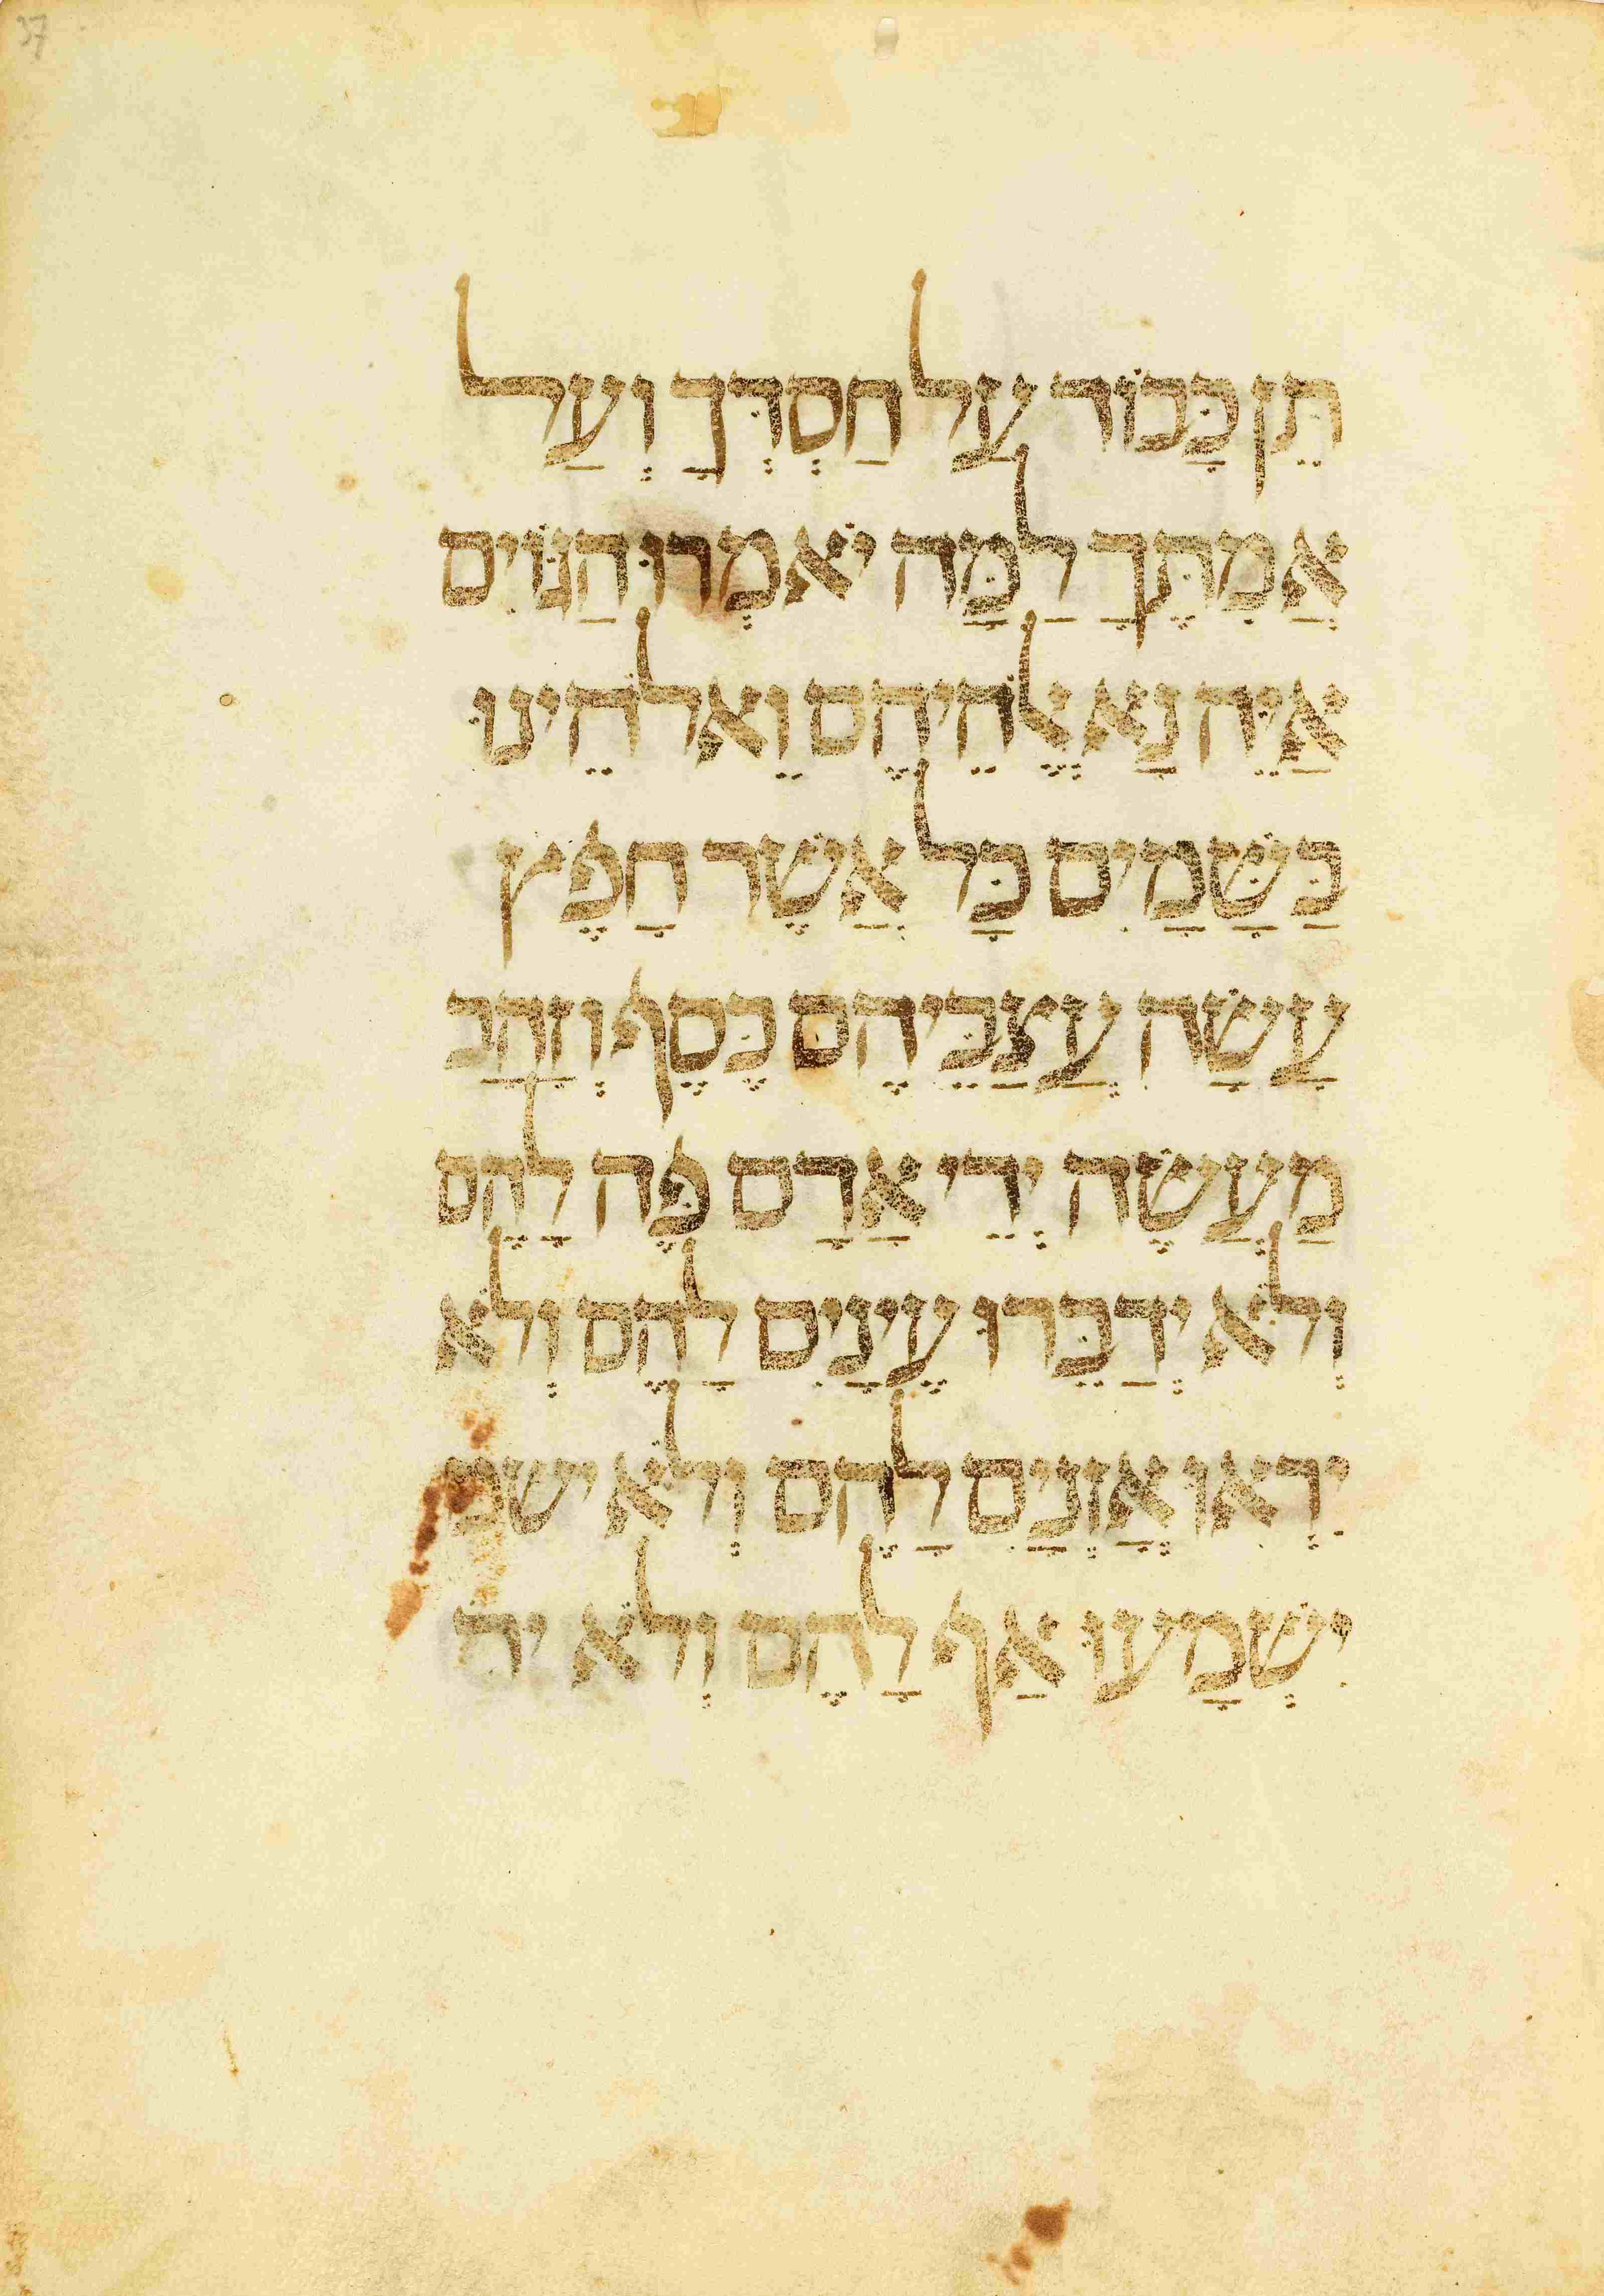 37
תֵּן כָּבוֹד עַל חַסְדְּךָ וְעַל
אֲמִתֶּךָ לַמָּה יֹאמְרוּ הַגּוֹיִם
אַיֵּה נָא אֱלֹהֵיהֶם וֵאלֹהֵינוּ
בַּשָּׁמַיִם כָּל אֲשֶׁר חָפֶץ
עָשָׂה עֲצַבֵּיהֶם כֶּסֶף וְזָהָב
מַעֲשֶׂה יְדֵי אָדָם פֶּה לָהֶם
וְלֹא יְדַבֵּרוּ עֵינַיִם לָהֶם וְלֹא
יִרְאוּ אָזְנַיִם לָהֶם וְלֹא ישמ
יִשְׁמָעוּ אַף לָהֶם וְלֹא יר